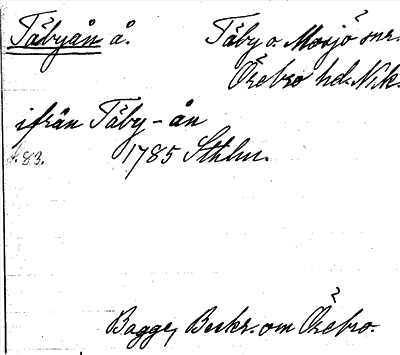 Täbyån å. Täby o. Mosjö snr.
Örebro hd. Nrk.
ifrån Täby-ån
s. 83. 1785 Sthlm.
Bagge, Beskr. om Örebro.